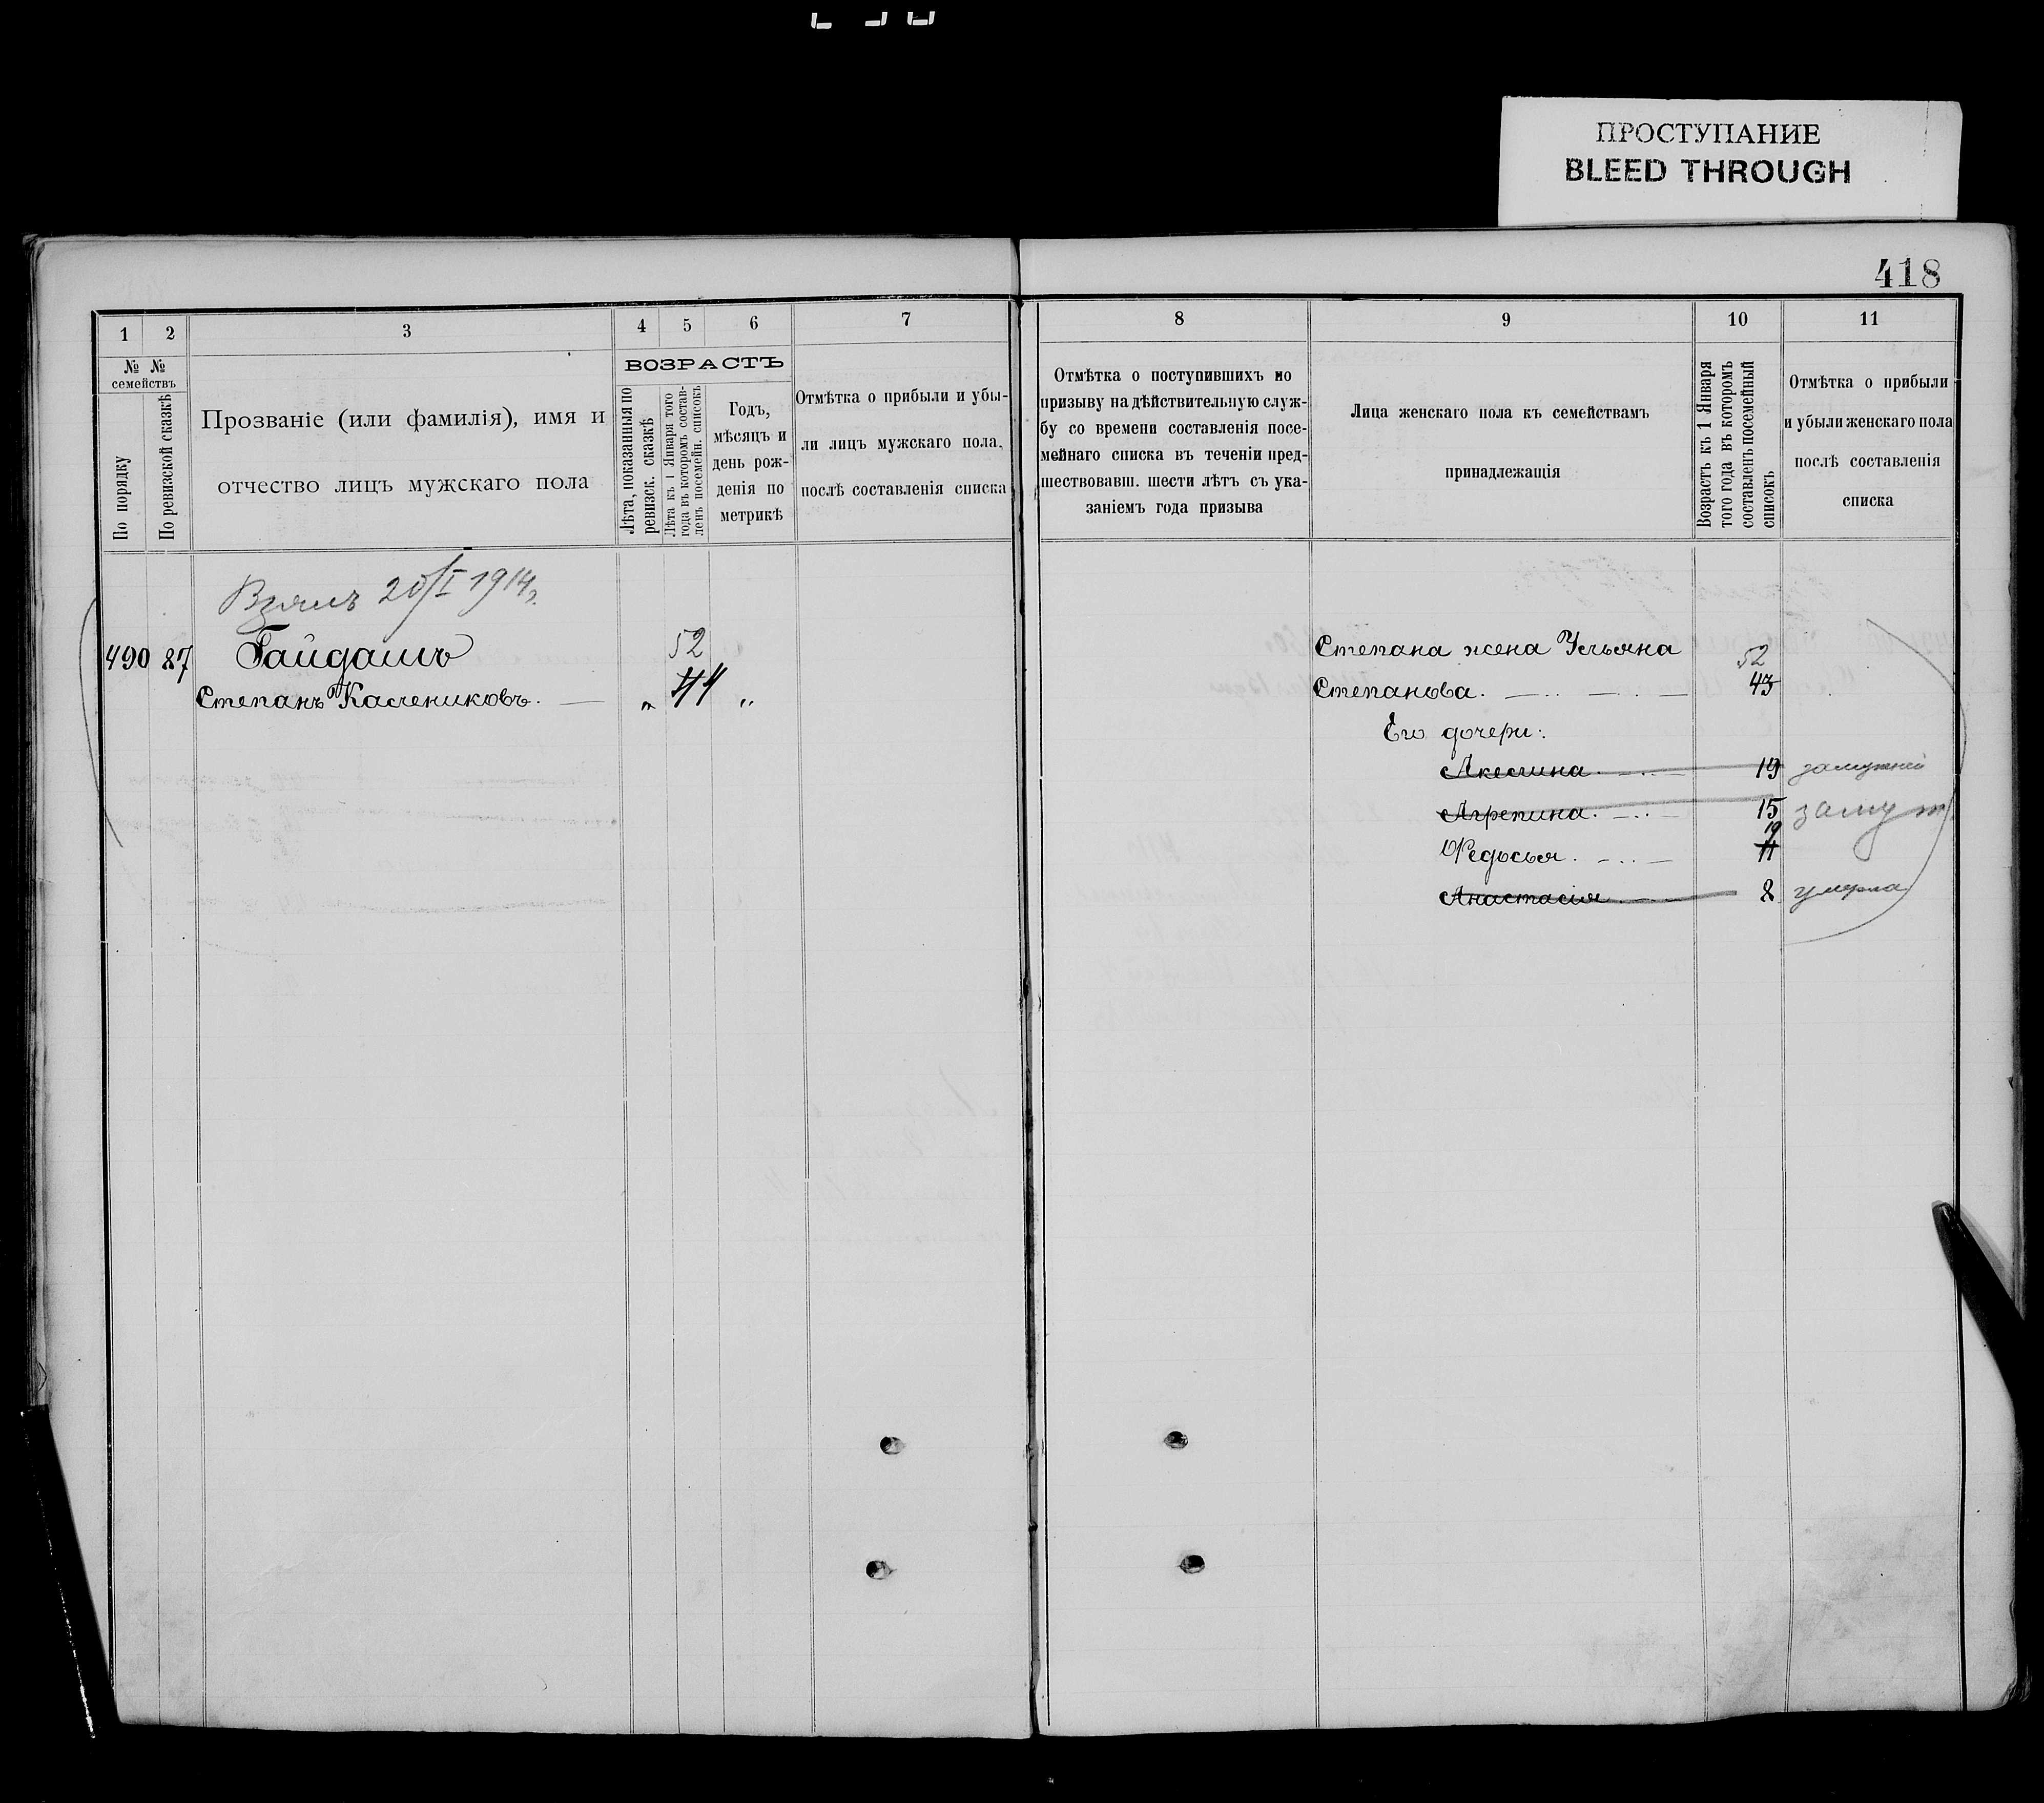 ПРОСТУПАНИЕ
BLEED THROUGH
418
1 2 3 4 5 6 7
№ № семействъ
По порядку
По ревизской сказкѣ
Прозваніе (или фамилія), имя и
отчество лицъ мужскаго пола
ВОЗРАСТЪ
Лѣта, показанныя по
ревизск. сказкѣ
Лѣта къ 1 Января того
года въ которомъ состав-
ленъ посемейн. списокъ
Годъ,
мѣсяцъ и
день рож-
денія по
метрикѣ
Отмѣтка о прибыли и убы-
ли лицъ мужскаго пола,
послѣ составленія списка
20/I 1914г.
490 87 Гайдашъ 52
Степанъ Каслениковъ. — „ 44 „
8 9 10 11
Отмѣтка о поступившихъ по
призыву на дѣйствительную служ-
бу со времени составленія посе-
мейнаго списка въ теченіи пред-
шествовавш. шести лѣтъ съ ука-
заніемъ года призыва
Лица женскаго пола къ семействамъ
принадлежащія
Возрастъ къ 1 Января
того года въ которомъ
составленъ посемейный
списокъ
Отмѣтка о прибыли
и убыли женскаго пола
послѣ составленія
списка
Степана жена Ульяна 52
Степанова. 43
Его дочери:
Акелина. 19 замужней
Агрепина. 15 замуж
Федосья. 19 11
Анастасія 8 умерла